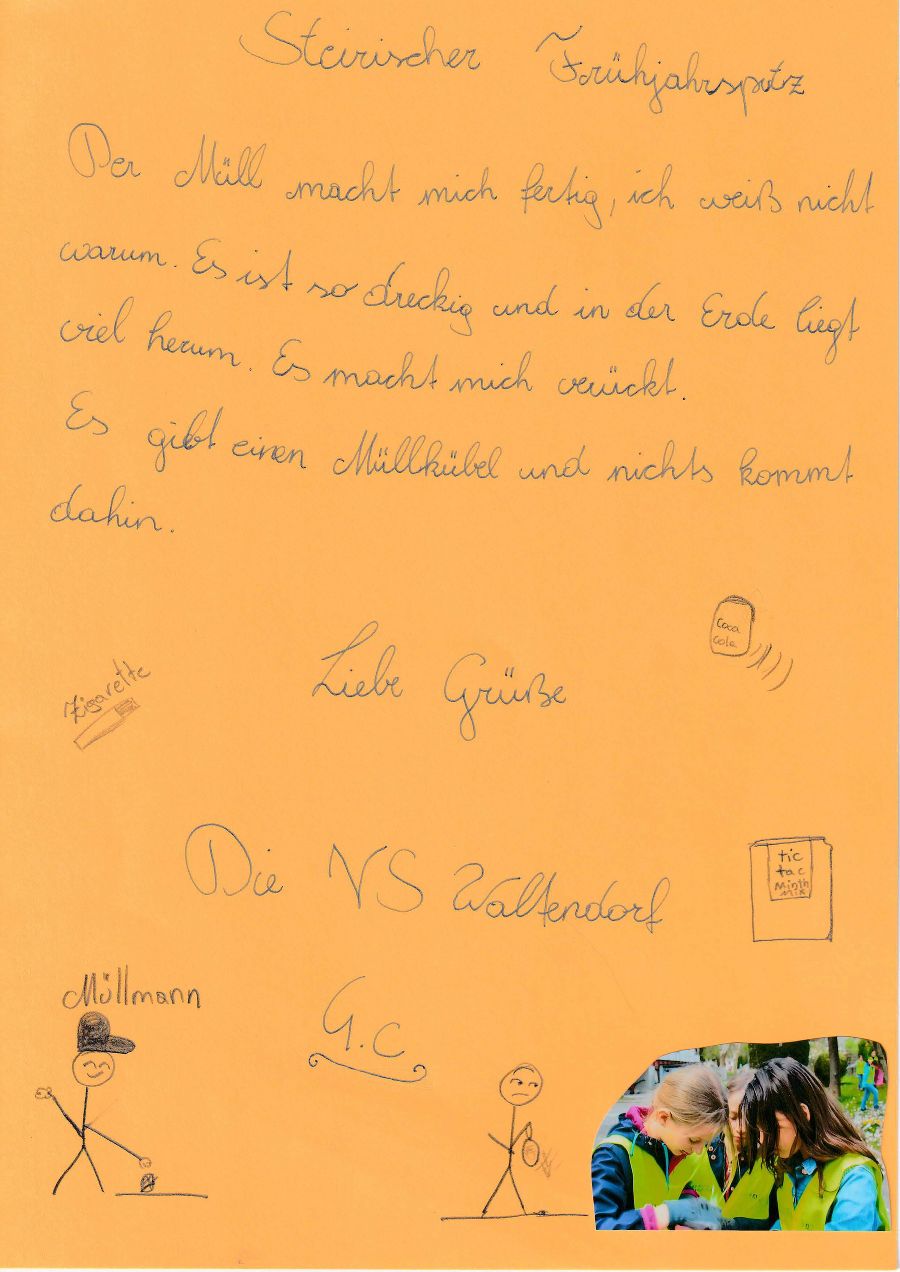 Steirischer Frühjahrsputz
Der Müll macht mich fertig, ich weiß nicht
warum. Es ist so dreckig und in der Erde liegt
viel herum. Es macht mich verückt.
Es gibt einen Müllkübel und nichts kommt
dahin.
Coca
cola
Liebe Grüße
Zigarette
Die VS Waltendorf
tic
tac
Minth
Mix
Müllmann
G.c